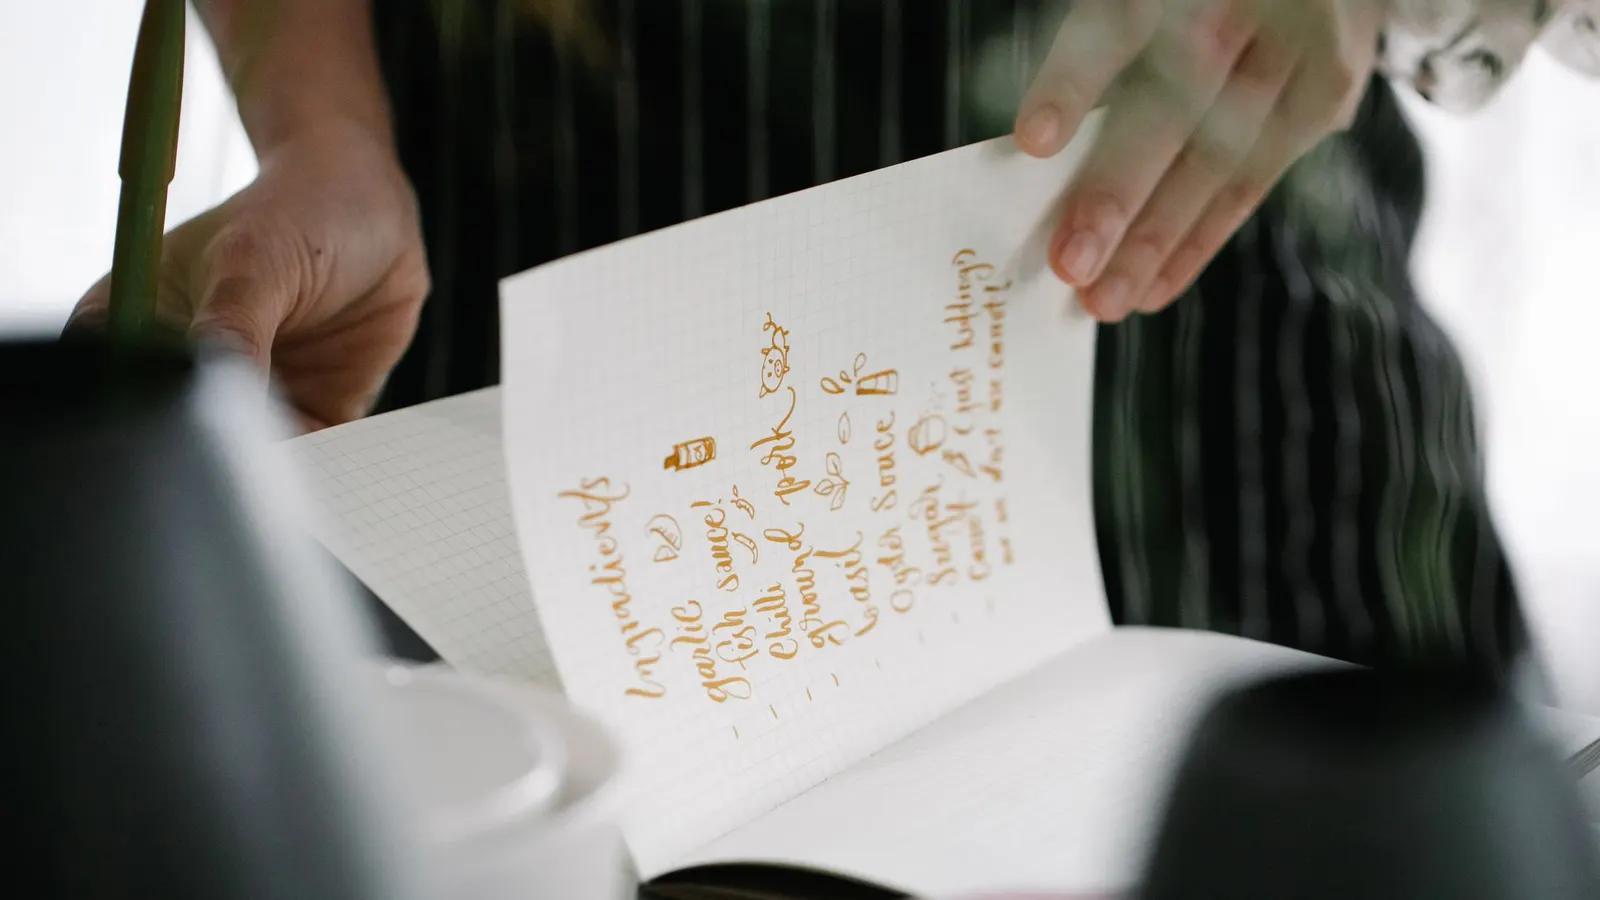 Ingradients
- garlic
- fish sauce!
- chilli
- ground pork
- basil
- Oyster Souce
- Sugar
- Carrot (just kidding)
we don't use carrot!